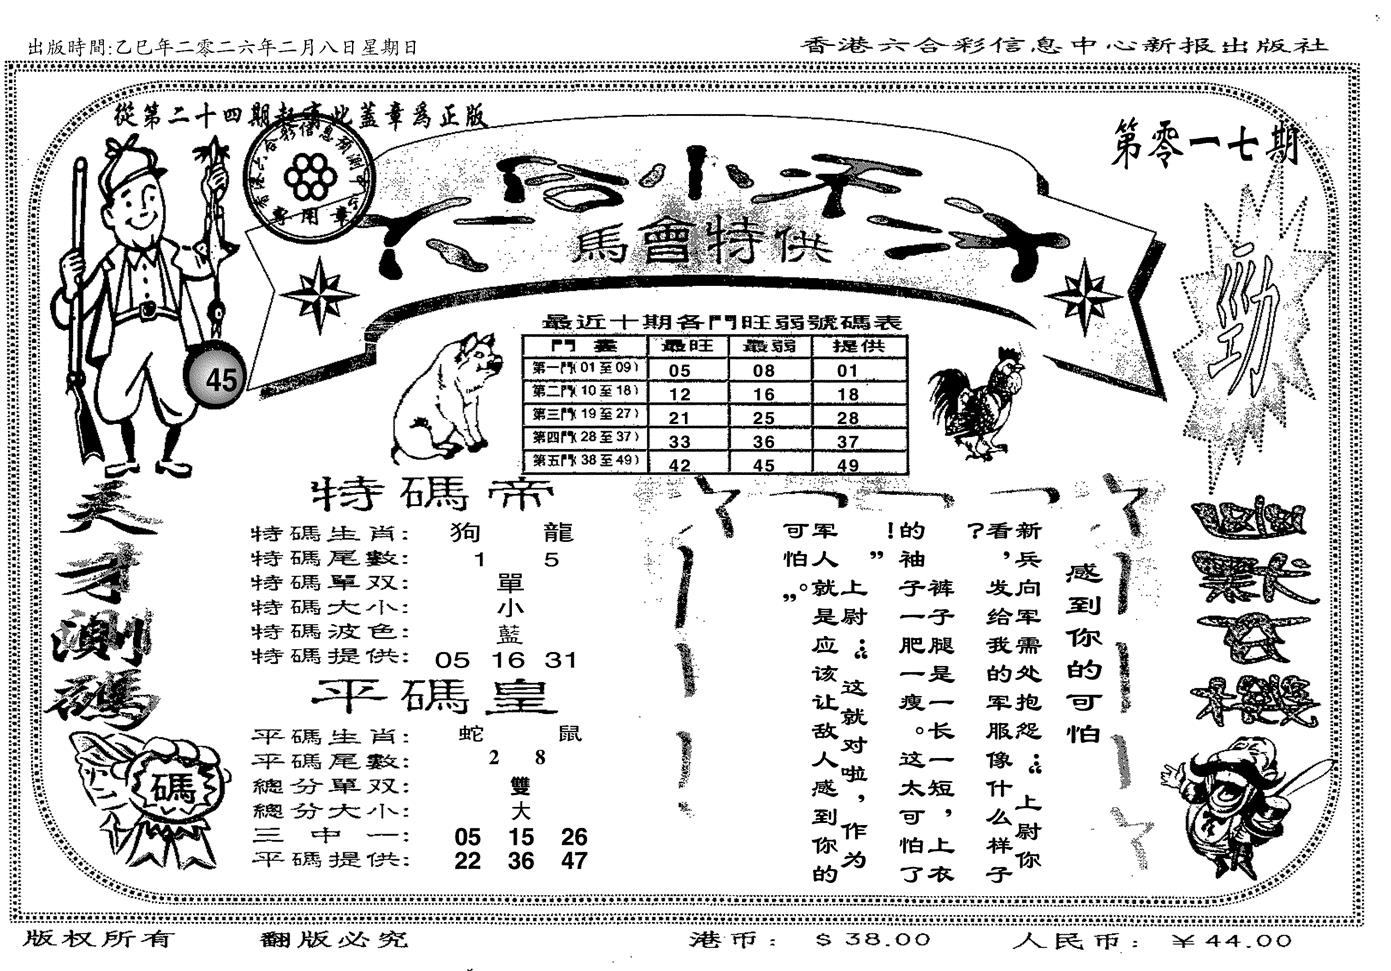 出版時間:乙巳年二零二六年二月八日星期日
香港六合彩信息中心新报出版社
從第二十四期起憑此蓋章爲正版
香港六合彩信息預測中心
專用章
第零一七期
馬會特供
45
最近十期各門旺弱號碼表
門 最旺 最弱 提供
第一門(01至09) 05 08 01
第二門(10至18) 12 16 18
第三門(19至27) 21 25 28
第四門(28至37) 33 36 37
第五門(38至49) 42 45 49
天才測碼
碼
特碼帝
特碼生肖: 狗 龍
特碼尾數: 1 5
特碼單双: 單
特碼大小: 小
特碼波色: 藍
特碼提供: 05 16 31
平碼皇
平碼生肖: 蛇 鼠
平碼尾數: 2 8
總分單双: 雙
總分大小: 大
三中一: 05 15 26
平碼提供: 22 36 47
感到你的可怕
新兵向军需处抱怨：“上尉你
看，发给我的军服像什么样子
？裤子腿一是一长一短，上衣
的袖子一肥一瘦。这太可怕了
！”
上尉：“这就对啦，作为
军人就是应该让敌人感到你的
可怕。”
版权所有
翻版必究
港币： $38.00
人民币： ￥44.00